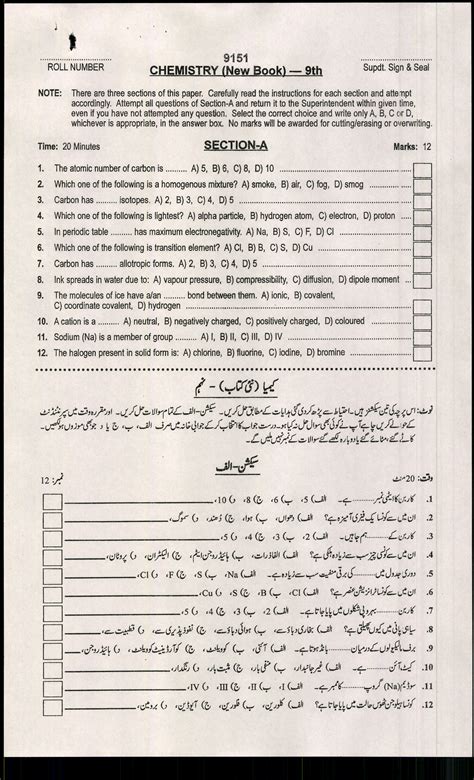 9151
ROLL NUMBER
CHEMISTRY (New Book) — 9th
Supdt. Sign & Seal
NOTE: There are three sections of this paper. Carefully read the instructions for each section and attempt
accordingly. Attempt all questions of Section-A and return it to the Superintendent within given time,
even if you have not attempted any question. Select the correct choice and write only A, B, C or D,
whichever is appropriate, in the answer box. No marks will be awarded for cutting/erasing or overwriting.
Time: 20 Minutes SECTION-A Marks: 12
1. The atomic number of carbon is ......... A) 5, B) 6, C) 8, D) 10
2. Which one of the following is a homogenous mixture? A) smoke, B) air, C) fog, D) smog
3. Carbon has ......... isotopes. A) 2, B) 3, C) 4, D) 5
4. Which one of the following is lightest? A) alpha particle, B) hydrogen atom, C) electron, D) proton
5. In periodic table ......... has maximum electronegativity. A) Na, B) S, C) F, D) Cl
6. Which one of the following is transition element? A) Cl, B) B, C) S, D) Cu
7. Carbon has ......... allotropic forms. A) 2, B) 3, C) 4, D) 5
8. Ink spreads in water due to: A) vapour pressure, B) compressibility, C) diffusion, D) dipole moment
9. The molecules of ice have a/an ......... bond between them. A) ionic, B) covalent,
C) coordinate covalent, D) hydrogen
10. A cation is a ......... A) neutral, B) negatively charged, C) positively charged, D) coloured
11. Sodium (Na) is a member of group ......... A) I, B) II, C) III, D) IV
12. The halogen present in solid form is: A) chlorine, B) fluorine, C) iodine, D) bromine
کیمیا (نئی کتاب) - نہم
نوٹ: اس پرچہ کے تین سیکشنز ہیں۔ احتیاط سے پڑھ کر دی گئی ہدایات کے مطابق حل کریں۔ سیکشن-الف کے تمام سوالات حل کریں۔ اور مقررہ وقت میں سپرنٹنڈنٹ
کے حوالے کریں چاہے آپ نے کوئی بھی سوال حل نہ کیا ہو۔ درست جواب کا انتخاب کر کے جوابی خانہ میں صرف الف، ب، ج یا د جو بھی موزوں ہو لکھیں۔
کاٹے گئے، مٹائے گئے یا دوبارہ لکھے گئے سوالات کے نمبر نہیں ملیں گے۔
وقت: 20 منٹ سیکشن-الف نمبر: 12
1. کاربن کا ایٹمی نمبر ......... ہے۔ الف) 5، ب) 6، ج) 8، د) 10،
2. ان میں سے کونسا یک آمیزہ ہے؟ الف) دھواں، ب) ہوا، ج) دھند، د) سموگ،
3. کاربن کے ......... ہم جا ہیں۔ الف) 2، ب) 3، ج) 4، د) 5،
4. ان میں سے کونسی چیز سب سے زیادہ ہلکی ہے؟ الف) الفا ذرات، ب) ہائیڈروجن ایٹم، ج) الیکٹران، د) پروٹان،
5. دوری جدول میں ......... کی برقی منفیت سب سے زیادہ ہے۔ الف) Na، ب) S، ج) F، د) Cl،
6. ان میں سے کونسا ٹرانزیشن عنصر ہے؟ الف) Cl، ب) B، ج) S، د) Cu،
7. کاربن ......... بہروپی شکلوں میں پایا جاتا ہے۔ الف) 2، ب) 3، ج) 4، د) 5،
8. سیاہی پانی میں کیوں پھیلتی ہے؟ الف) بخاری دباؤ سے، ب) ہوائی دباؤ سے، ج) نفوذ پذیری سے، د) قطبیت سے،
9. برف کے مالیکیولوں کے درمیان ......... بانڈ ہوتا ہے۔ الف) آئنی، ب) کوویلنٹ، ج) کوآرڈینیٹ کوویلنٹ، د) ہائیڈروجن،
10. کیٹ آئن ......... ہے۔ الف) غیر جانبدار، ب) منفی بار، ج) مثبت بار، د) رنگدار،
11. سوڈیم (Na) گروپ ......... کا ممبر ہے۔ الف) I، ب) II، ج) III، د) IV،
12. کونسا ہیلوجن ٹھوس حالت میں پایا جاتا ہے؟ الف) کلورین، ب) فلورین، ج) آیوڈین، د) برومین،